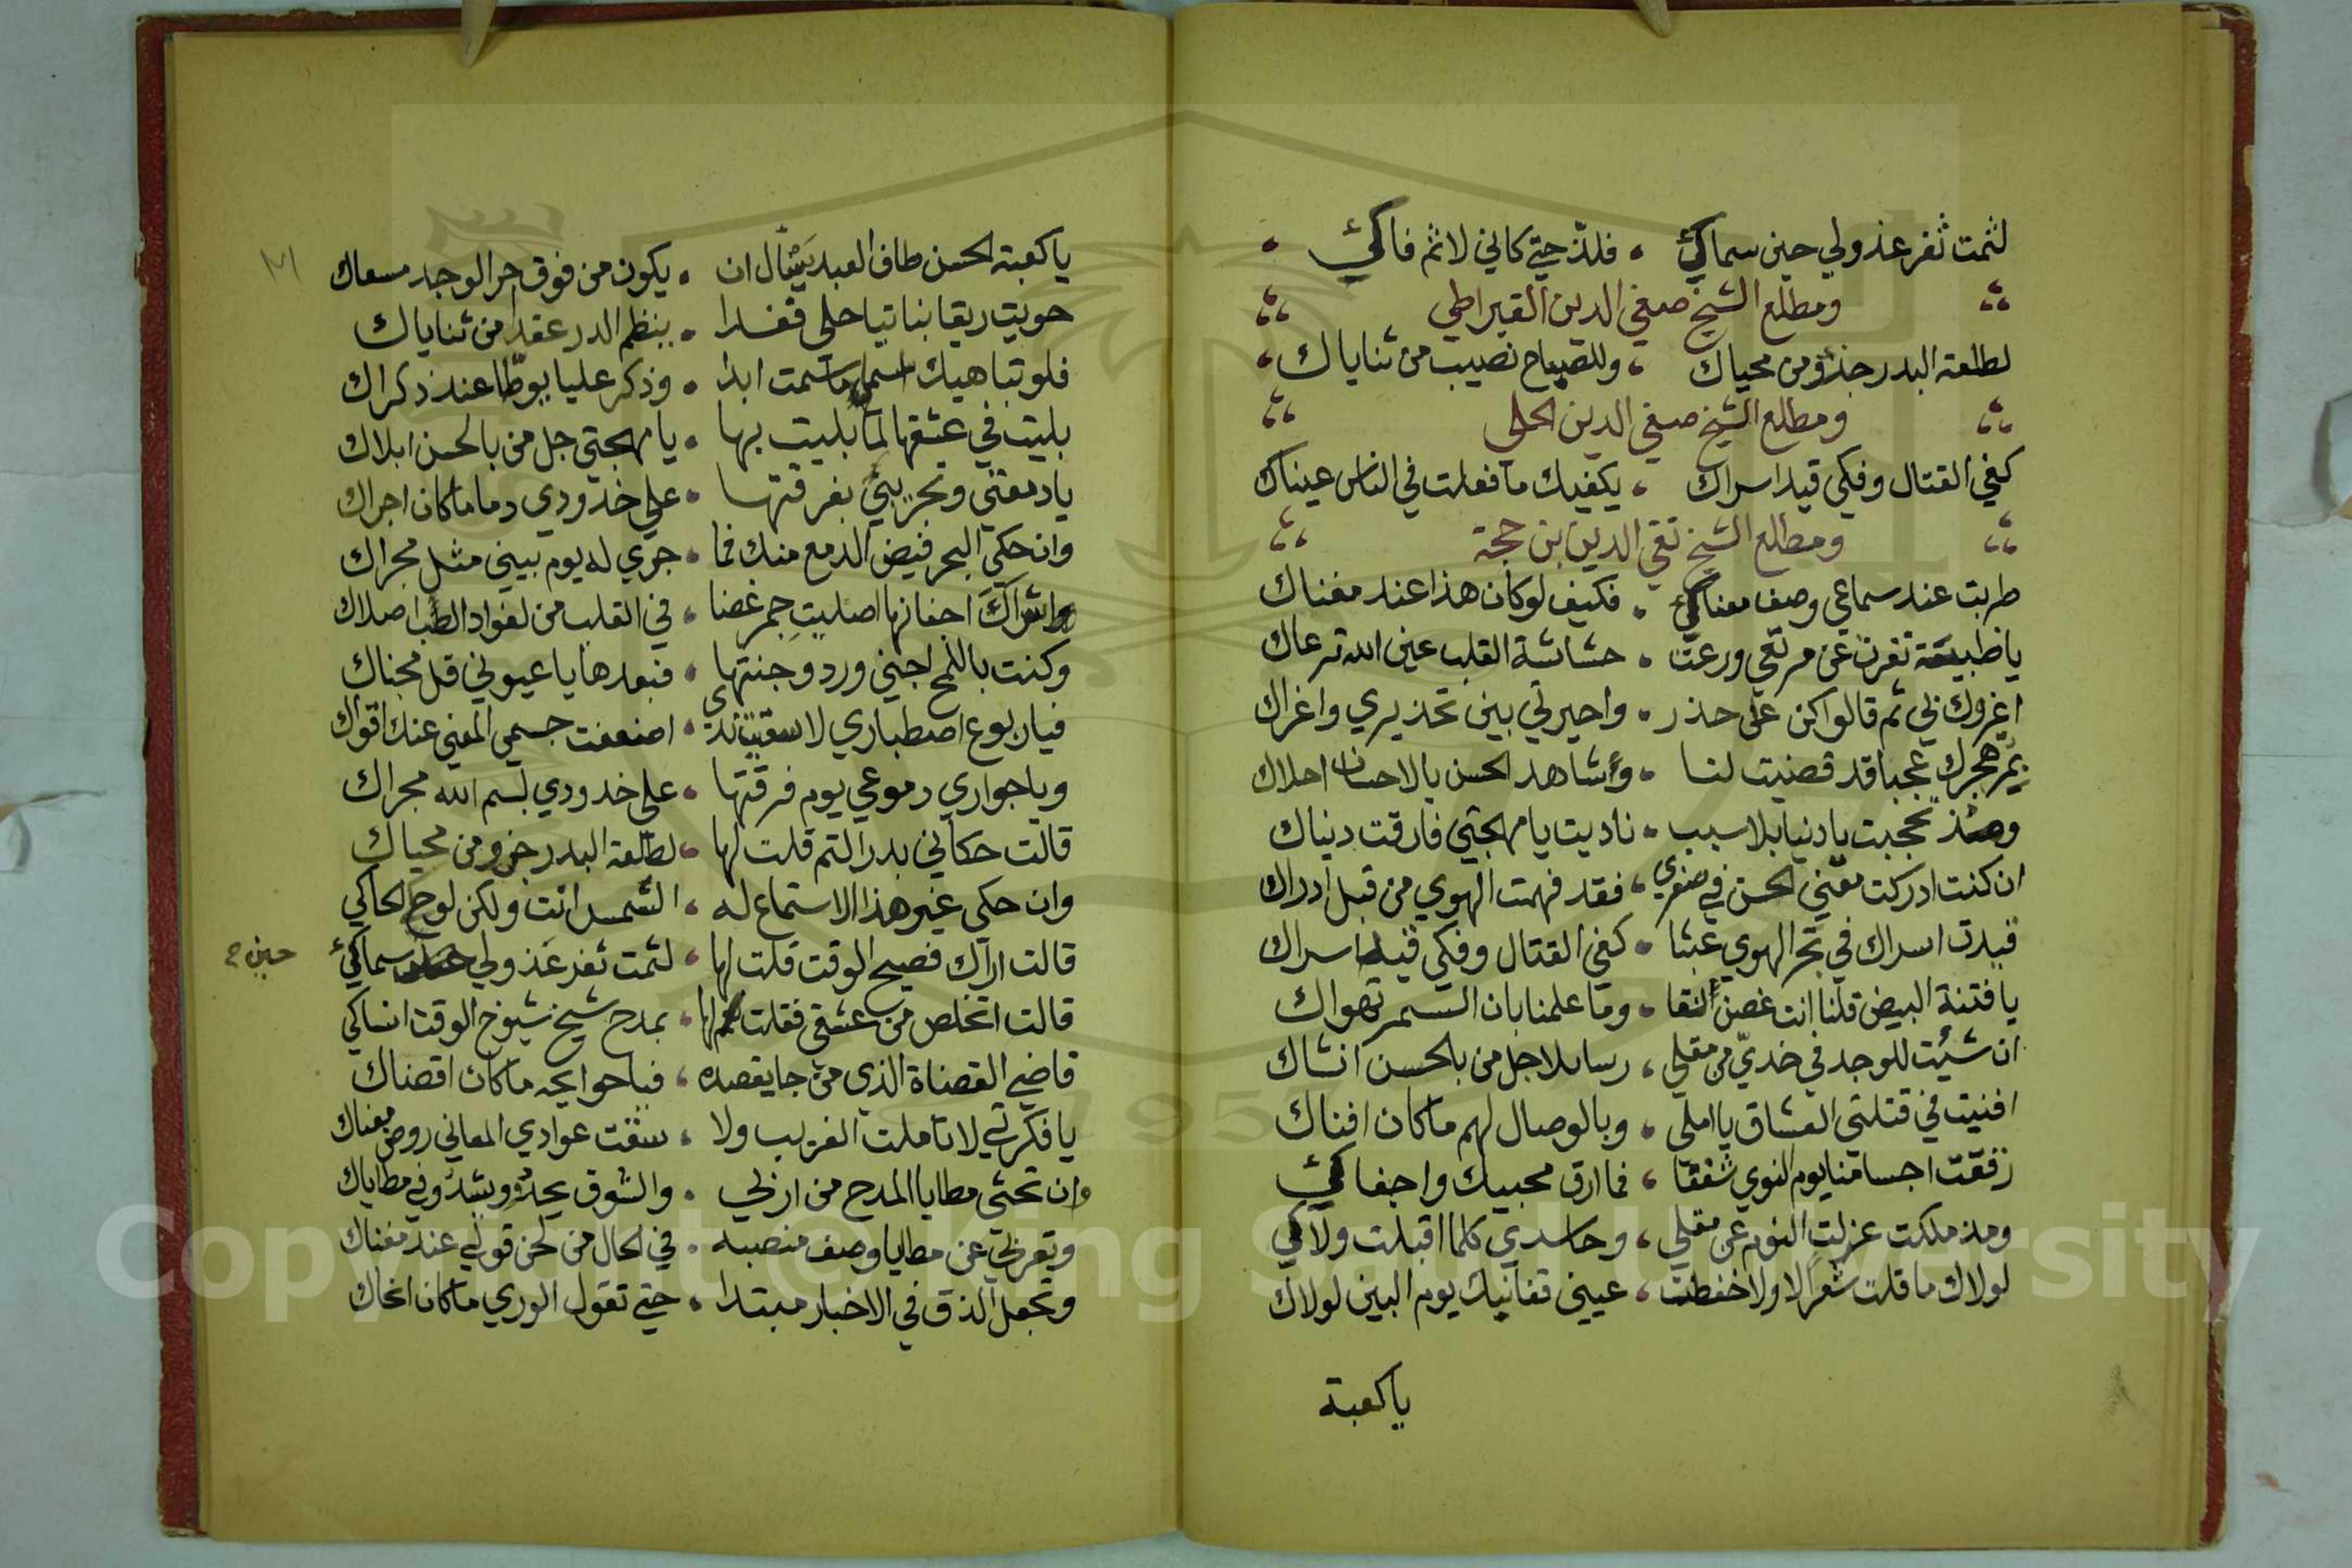 لثمت ثغر عذولي حين سماكئ فلذ حتي كاني لاثم فاكئ
ومطلع الشيخ صفي الدين القيراطي
لطلعة البدر جزؤ من محياك وللصباح نصيب من ثناياك
ومطلع الشيخ صفي الدين الحلي
كفي القتال وفكي قيد اسراك يكفيك ما فعلت في الناس عيناك
ومطلع الشيخ تقي الدين بن حجة
طربت عند سماعي وصف معناكئ فكيف لو كان هذا عند مغناك
يا ظبية نفرت عن مرتعي ورعت حشاشة القلب عين الله ترعاك
اغروك بي ثم قالوا كن على حذر واحيرتي بين تحذيري واغراك
بمر هجرك عجبا قد قضيت لنا وشاهد الحسن بالاحسان احلاك
تحجبت يا دنيا بلا سبب ناديت يا مهجتي فارقت دنياك
ان كنت ادركت معني الحسن في صغري فقد فهمت الهوي من قبل ادراك
قيدت اسراك في بحر الهوي عبثا كفي القتال وفكي قيد اسراك
يا فتنة البيض قلنا انت غصن النقا وما علمنا بان السمر تهواك
ان شيت للوجد في خدي من مقلي رسايلا جل من بالحسن انشاك
افنيت في قتلتي العشاق يا املي وبالوصال لهم ما كان افناك
اجسامنا يوم النوي شغفا فما ارق محبيك واجفاكئ
ومذ ملكت عزلت النوم عن مقلي وحاسدي كلما اقبلت ولاكي
لولاك ما قلت شعرا لا ولا عيني يوم البين لولاك
يا كعبة
يا كعبة الحسن طاف العبد يسأل ان يكون من فوق حر الوجد مسعاك
حويت ريقا نباتيا حلى فغدا ينظم الدر عقدا من ثناياك
فلو تباهيك اسمى ما سمت ابدا وذكر عليا يوطا عند ذكراك
بليت في عشقها لما بليت بها يا مهجتي جل من بالحسن ابلاك
يا دمعتي بفرقتها علي خدودي دما ما كان اجراك
وان حكي البحر فيض الدمع منك فما جري له يوم بيني مثل مجراك
اجفانها اصليت جمر غضا في القلب من لفواد الصب اصلاك
وكنت باللمح اجني ورد وجنتها فبعدها يا عيوني قل مجناك
فيا ربوع اصطباري لا سقيت ندى اضعفت جسمي المضني عنك اقواك
ويا جواري دموعي يوم فرقتها على خدودي بسم الله مجراك
قالت حكاني بدر التم قلت لها لطلعة البدر جزو من محياك
وان حكي غير هذا لا استماع له الشمس انت ولكن لوح الحاكي
قالت اراك فصيح الوقت قلت لها لثمت ثغر عذولي سماكئ
حين ح
قالت اتخلص من عشقي فقلت لها بمدح شيخ شيوخ الوقت انساكي
قاضي القضاة الذي من جا يقصده فيا حوايجه ما كان اقضاك
يا فكرتي لا تاملت الغريب ولا سقت عوادي المعاني روض معناك
وان تحثي مطايا المدح من ازلي والشوق يحدو ويشدو في مطاياك
وتعربي عن مطايا وصف منصبه في الحال من لحن قولي عند مغناك
وتجعل الذق في الاخبار مبتدا حتي تقول الوري ما كان انحاك